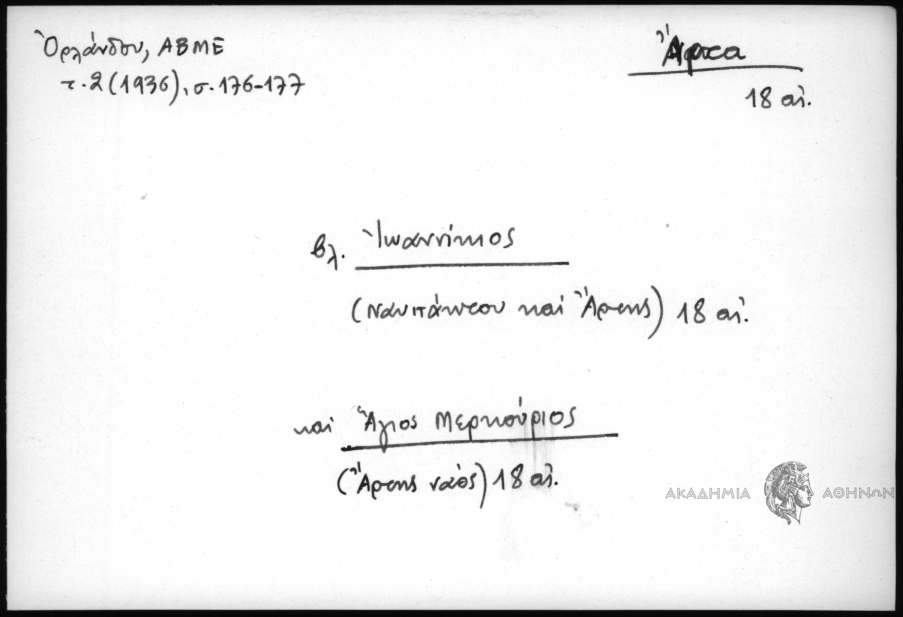 Ὀρλάνδου, ΑΒΜΕ
τ. 2 (1936), σ. 176-177
Ἄρτα
18 αἰ.
βλ. Ἰωαννίκιος
(Ναυπάκτου καὶ Ἄρτης) 18 αἰ.
καὶ Ἅγιος Μερκούριος
(Ἄρτης ναὸς) 18 αἰ.
ΑΚΑΔΗΜΙΑ ΑΘΗΝΩΝ